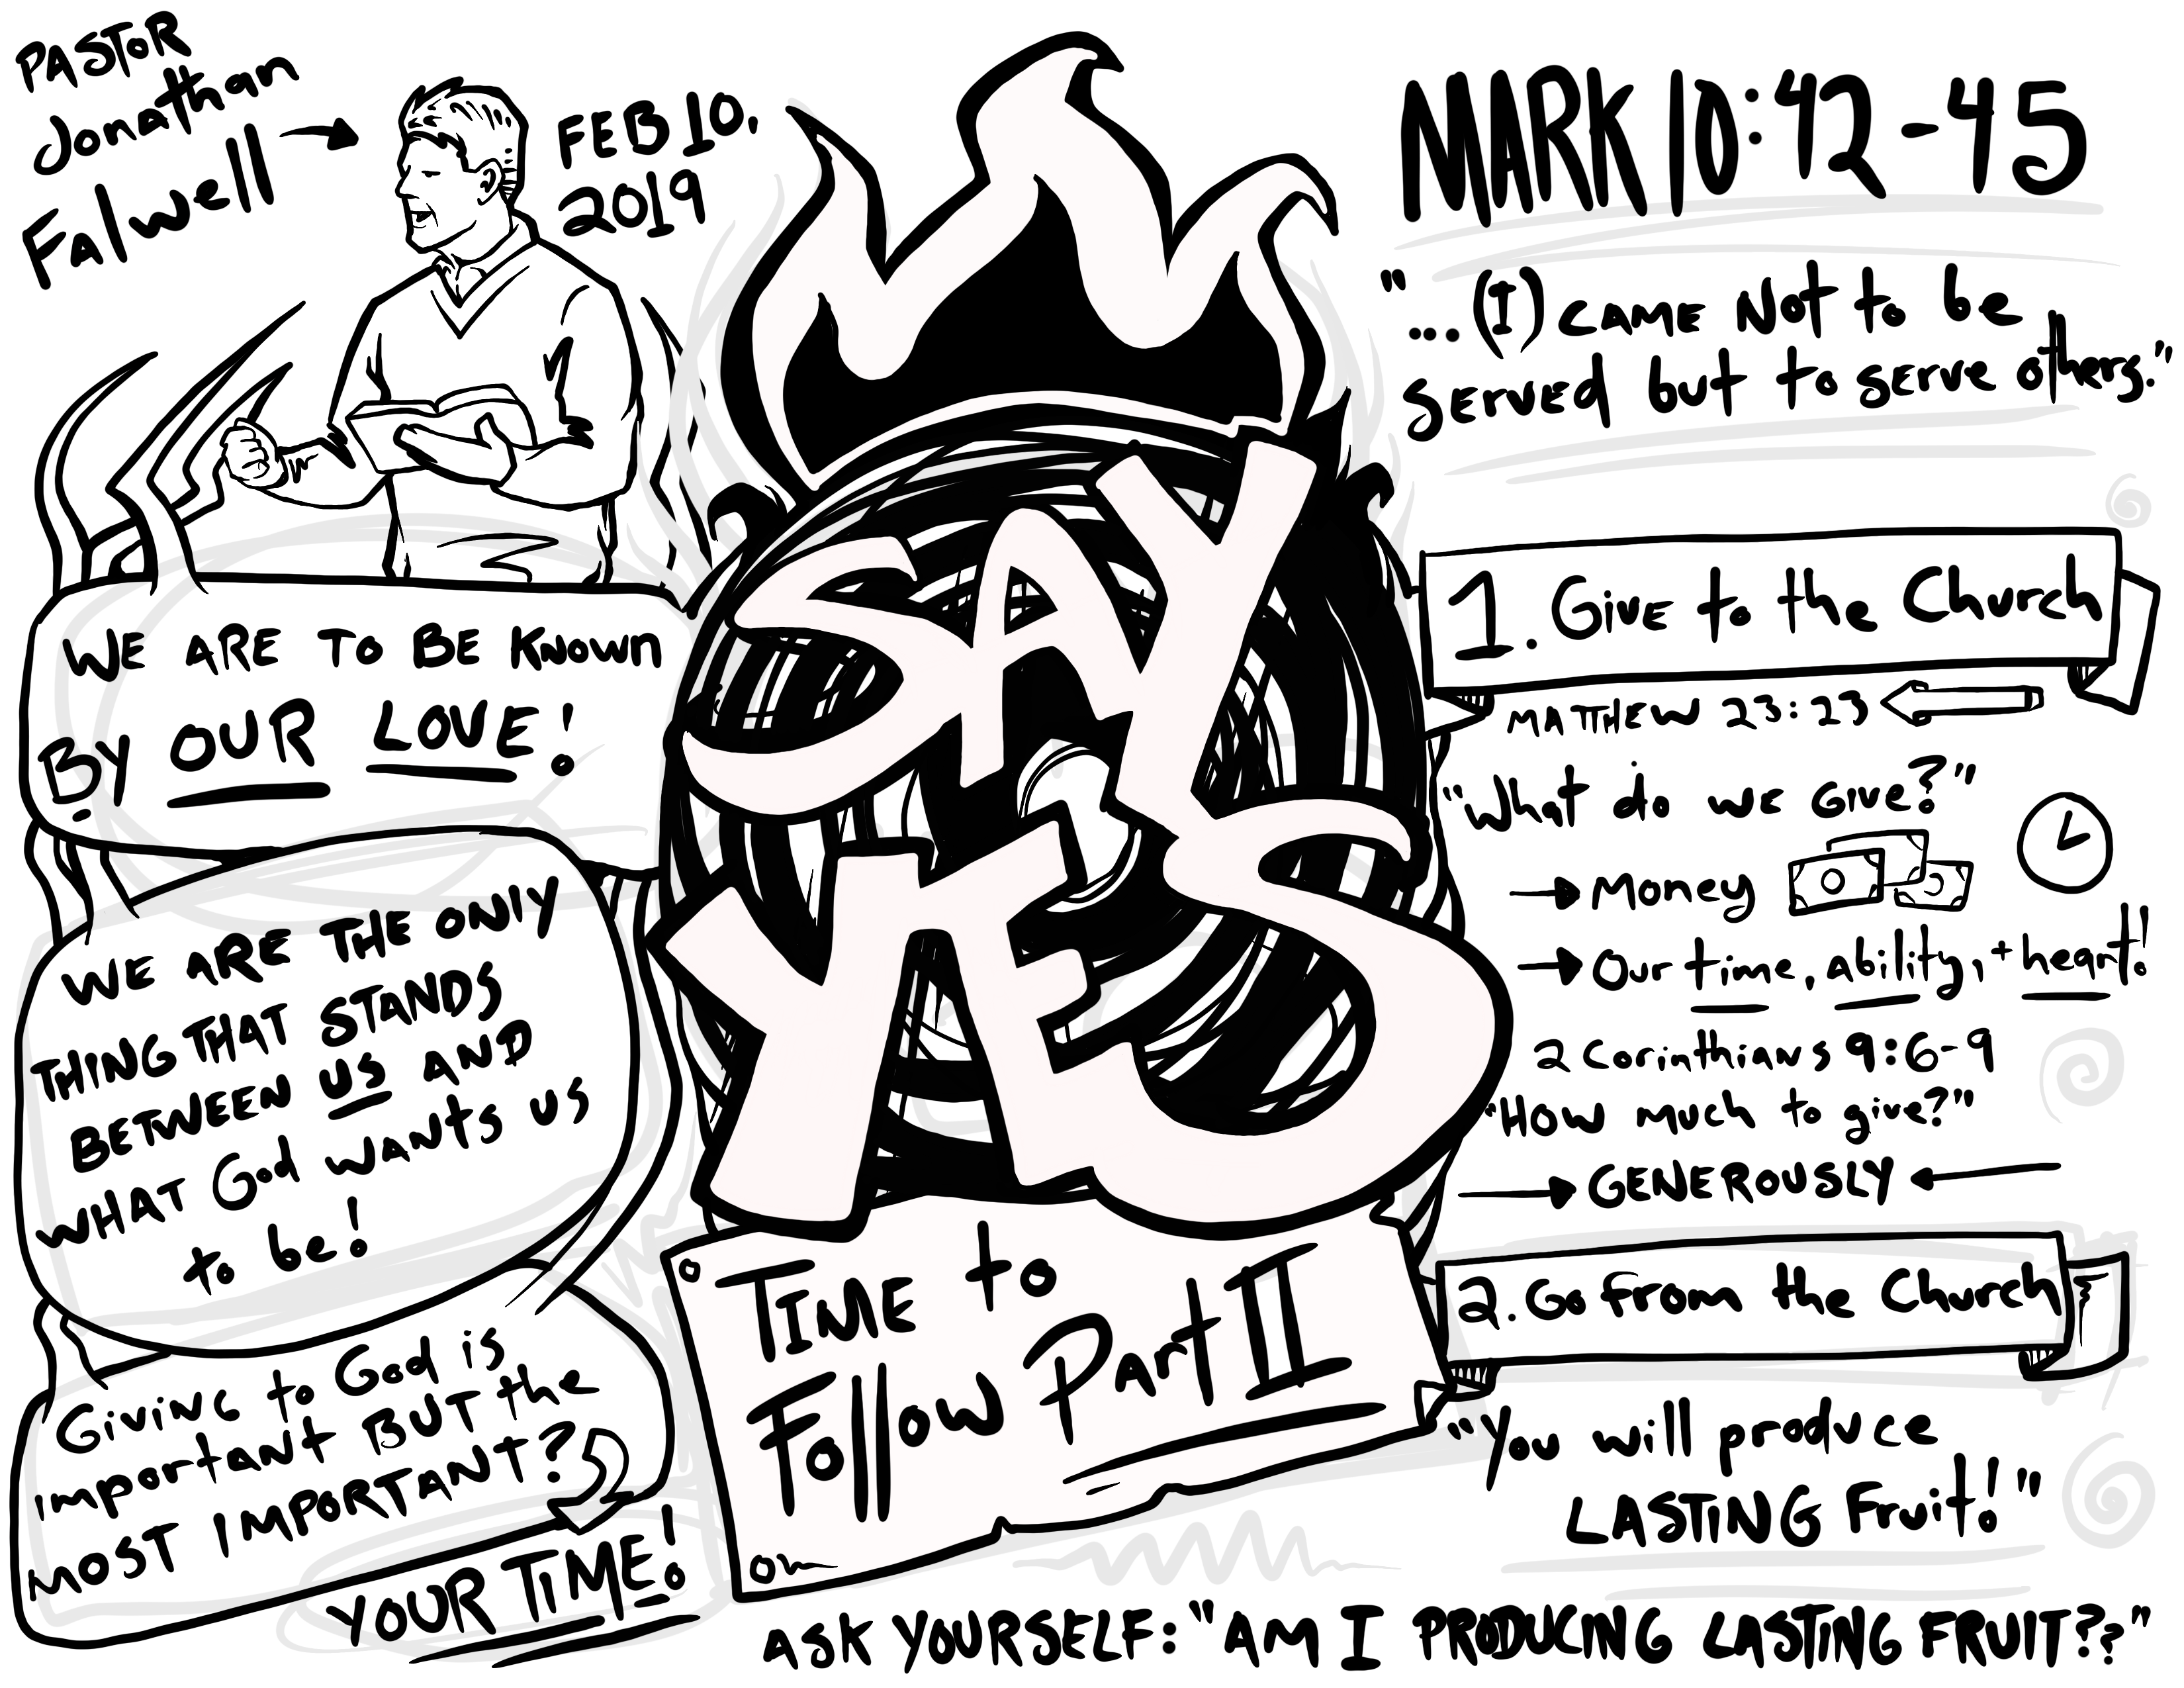 PASTOR
Jonathan
Falwell
FEB 10,
2019
WE ARE TO BE Known
By OUR LOVE!
WE ARE THE ONLY
THING THAT STANDS
BETWEEN US AND
WHAT God WANTS US
to be!
Giving to God is
important BUT the
MOST IMPORTANT?
YOUR TIME!
SAY
YES
TIME to
Follow Part II
MARK 10:42-45
"...(I) CAME Not to be
SERVED but to SERVE others."
1. Give to the Church
MATTHEW 23:23
"What do we Give?"
Money
Our time, ability, + heart!
2 Corinthians 9:6-9
"How much to give?"
GENEROUSLY
2. Go from the Church
"You will produce
LASTING Fruit!"
ASK YOURSELF: "AM I PRODUCING LASTING FRUIT??"